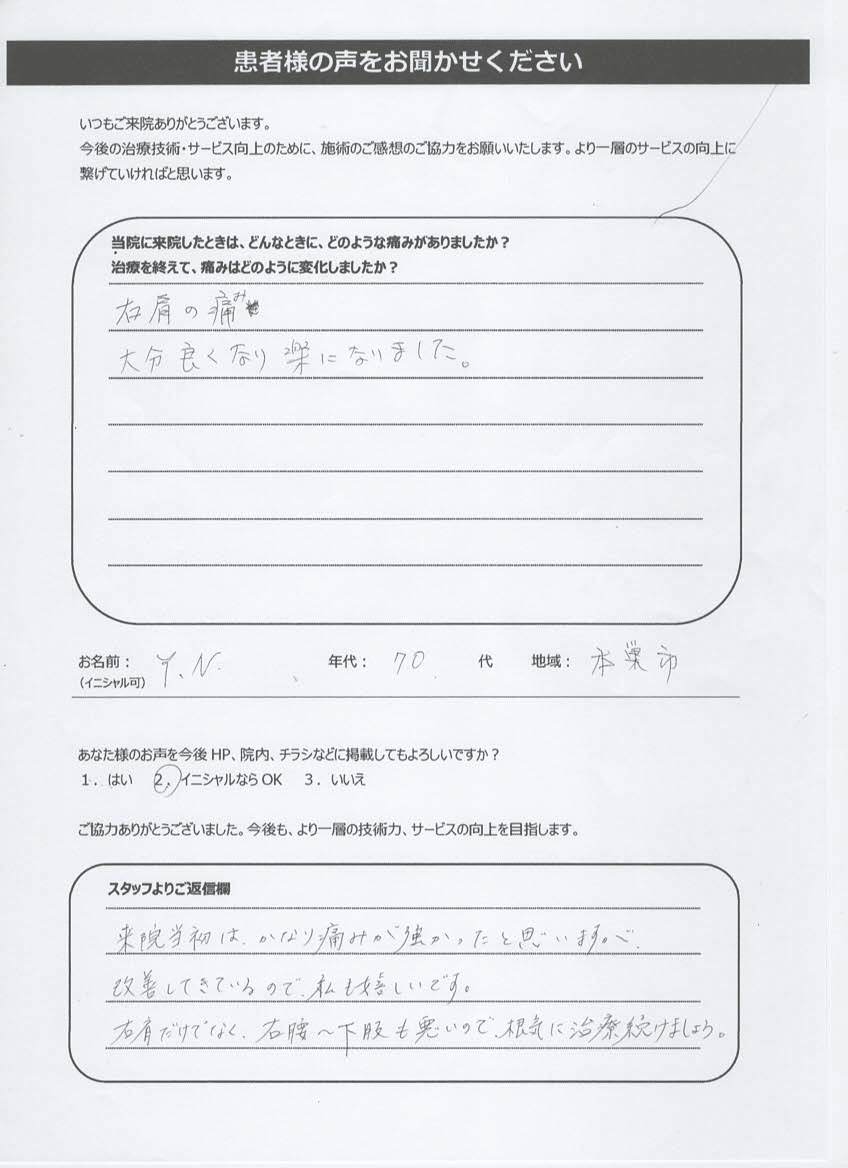 患者様の声をお聞かせください
いつもご来院ありがとうございます。
今後の治療技術・サービス向上のために、施術のご感想のご協力をお願いいたします。より一層のサービスの向上に
繋げていければと思います。
当院に来院したときは、どんなときに、どのような痛みがありましたか？
治療を終えて、痛みはどのように変化しましたか？
右肩の痛み
大分良くなり楽になりました。
お名前： Y.N. 年代： 70 代 地域： 本巣市
（イニシャル可）
あなた様のお声を今後HP、院内、チラシなどに掲載してもよろしいですか？
1．はい 2．イニシャルならOK 3．いいえ
ご協力ありがとうございました。今後も、より一層の技術力、サービスの向上を目指します。
スタッフよりご返信欄
来院当初は、かなり痛みが強かったと思いますが、
改善してきているので、私も嬉しいです。
右肩だけでなく、右腰～下肢も悪いので、根気に治療続けましょう。